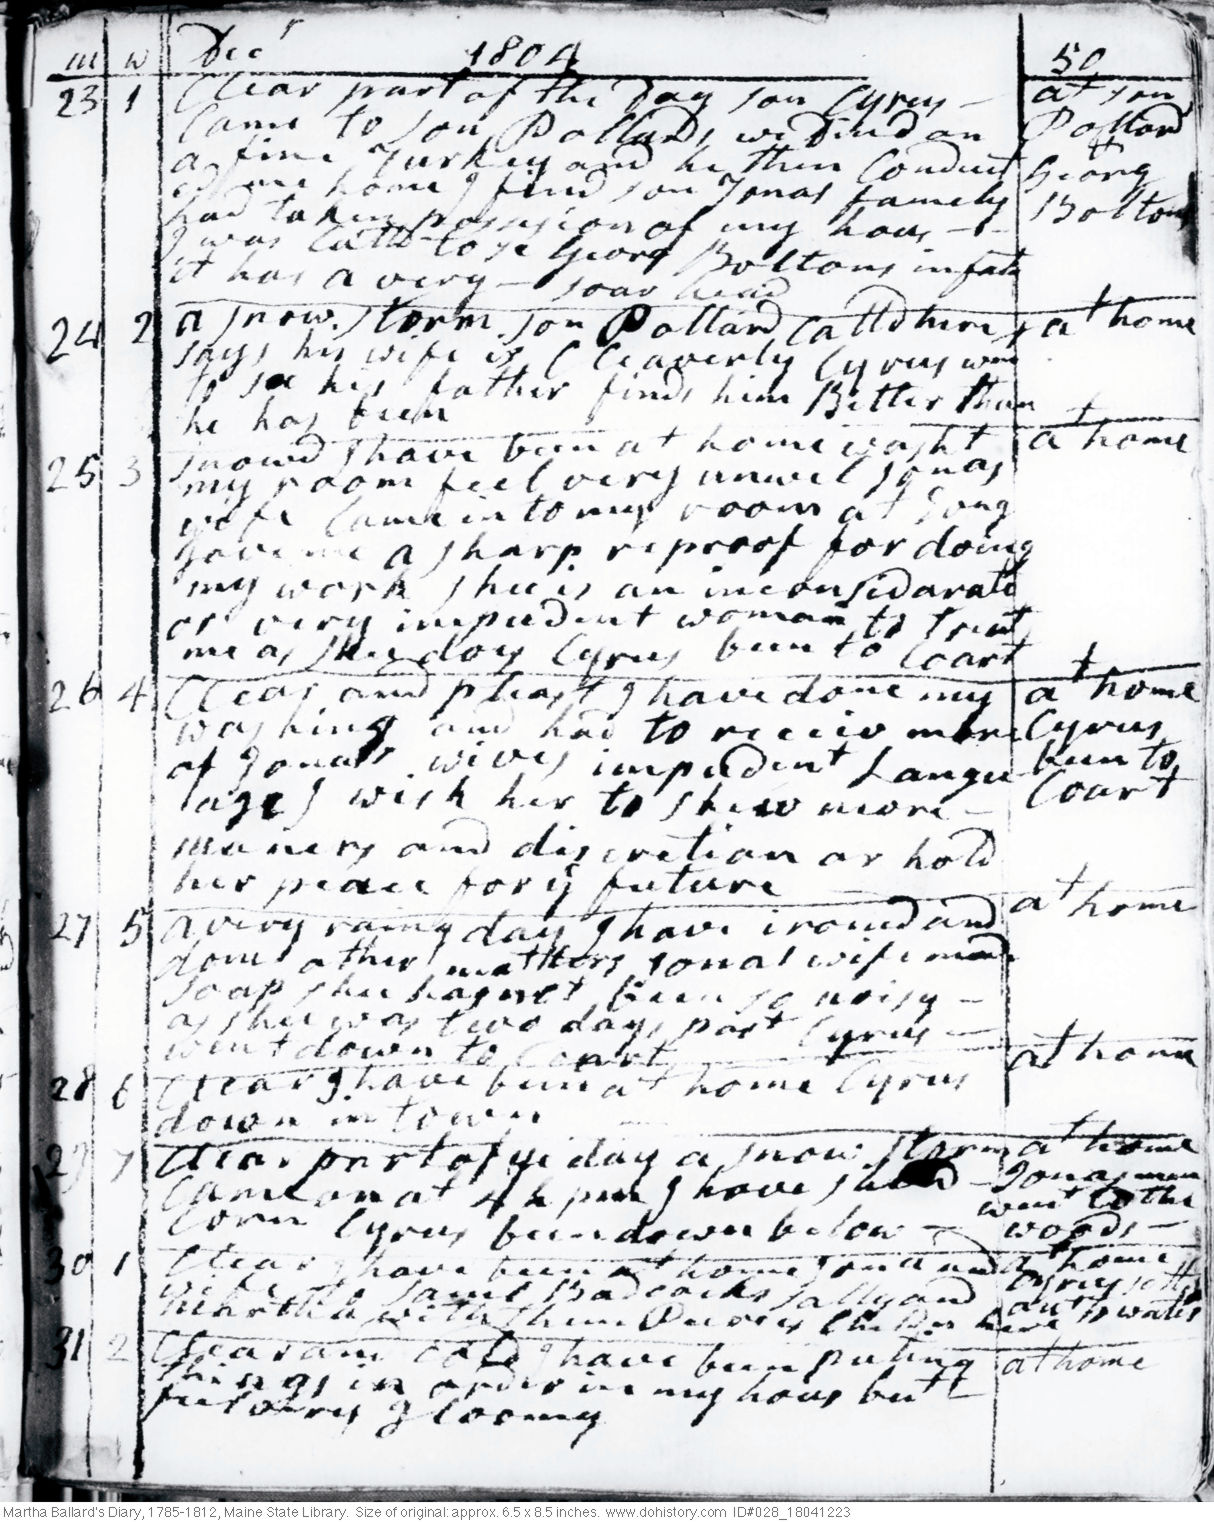 m w Decr 1804 50
23 1 Clear part of the Day son Cyrus - at son
Came to son Pollards we dined on Pollard
a fine Turkey and he then Conduct &
me home I find son Jonas famely Georg
had taken possesion of my hous - Boltons
I was Calld to se Georg Boltons infant
it has a very - soar head
24 2 a snow storm son Pollard Calld here at home
says his wife is Cleaverly Cyrus went
to se his father finds him Better than
he has been
25 3 snowd I have been at home washt at home
my room feel very unwel Jonas
wife Came in to my room at
gave me a sharp reproof for doing
my work shee is an inconsidarate
or very impudent woman to treat
me as shee does Cyrus been to Coart
26 4 Clear and pleast I have done my at home
washing and had to receiv more Cyrus
of Jonas's wives impudent Langu been to
lage I wish her to shew more - Coart
maners and discretion or hold
her peace for ye future
27 5 a very rainy day I have ironed and at home
done other matters Jonas wife made
soap shee has not been so noisy -
as shee was two days past Cyrus -
went down to Coart
28 6 Clear I have been at home Cyrus at home
down in town
29 7 Clear part of ye day a snow storm at home
Came on at 4 h pm I have sheld - Jonas
Corn Cyrus been down below - went to the
woods -
30 1 Clear I have been at home Jonas and at home
wife to Saml Badcocks Sally and Cyrus
with them Here
31 2 Clear and cold I have been puting at home
things in order in my hous but
feel very gloomy
Martha Ballard's Diary, 1785-1812, Maine State Library. Size of original: approx. 6.5 x 8.5 inches. www.dohistory.com ID#028_18041223